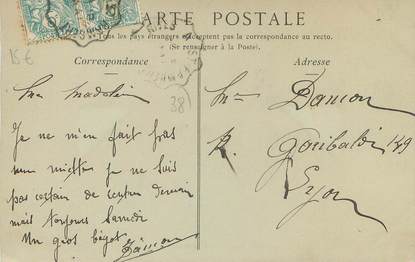 CARTE POSTALE
Tous les pays étrangers n'acceptent pas la correspondance au recto.
(Se renseigner à la Poste).
Correspondance
Adresse
15 €
38
Mme Damon
R. Garibaldi 149
Lyon
Je ne m'en fait pas
je ne suis
pas certain de demain
mais toujours Samedi
Un gros bégot
Damon